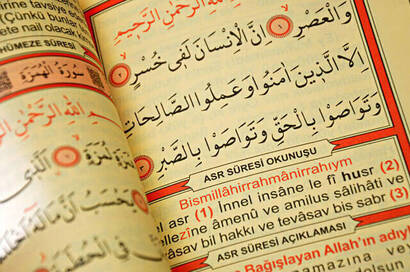 irine tavsiye e
(Çünkü bunlar
nete nail olacak
HÜMEZE SÛRESİ
سُورَةُ الْهُمَزَةِ
بِسْمِ اللهِ الرَّحْمٰنِ الرَّ
لُمَزَةٍ ۙ ١ اَلَّذ۪ي
اللهِ الرَّحْمٰنِ الرَّح۪يمِ
وَالْعَصْرِ ۙ ١ اِنَّ الْاِنْسَانَ لَف۪ي خُسْرٍ ۙ ٢
اِلَّا الَّذ۪ينَ اٰمَنُوا وَعَمِلُوا الصَّالِحَاتِ
وَتَوَاصَوْا بِالْحَقِّ وَتَوَاصَوْا بِالصَّبْرِ ٣
ASR SÛRESİ OKUNUŞU
Bismillâhirrahmânirrahıym
el asr (1) İnnel insâne le fî husr (2)
ellezîne âmenû ve amilus sâlihâti ve
vâsav bil hakkı ve tevâsav bis sabr (3)
ASR SÛRESİ AÇIKLAMASI
Bağışlayan Allah'ın adıyla